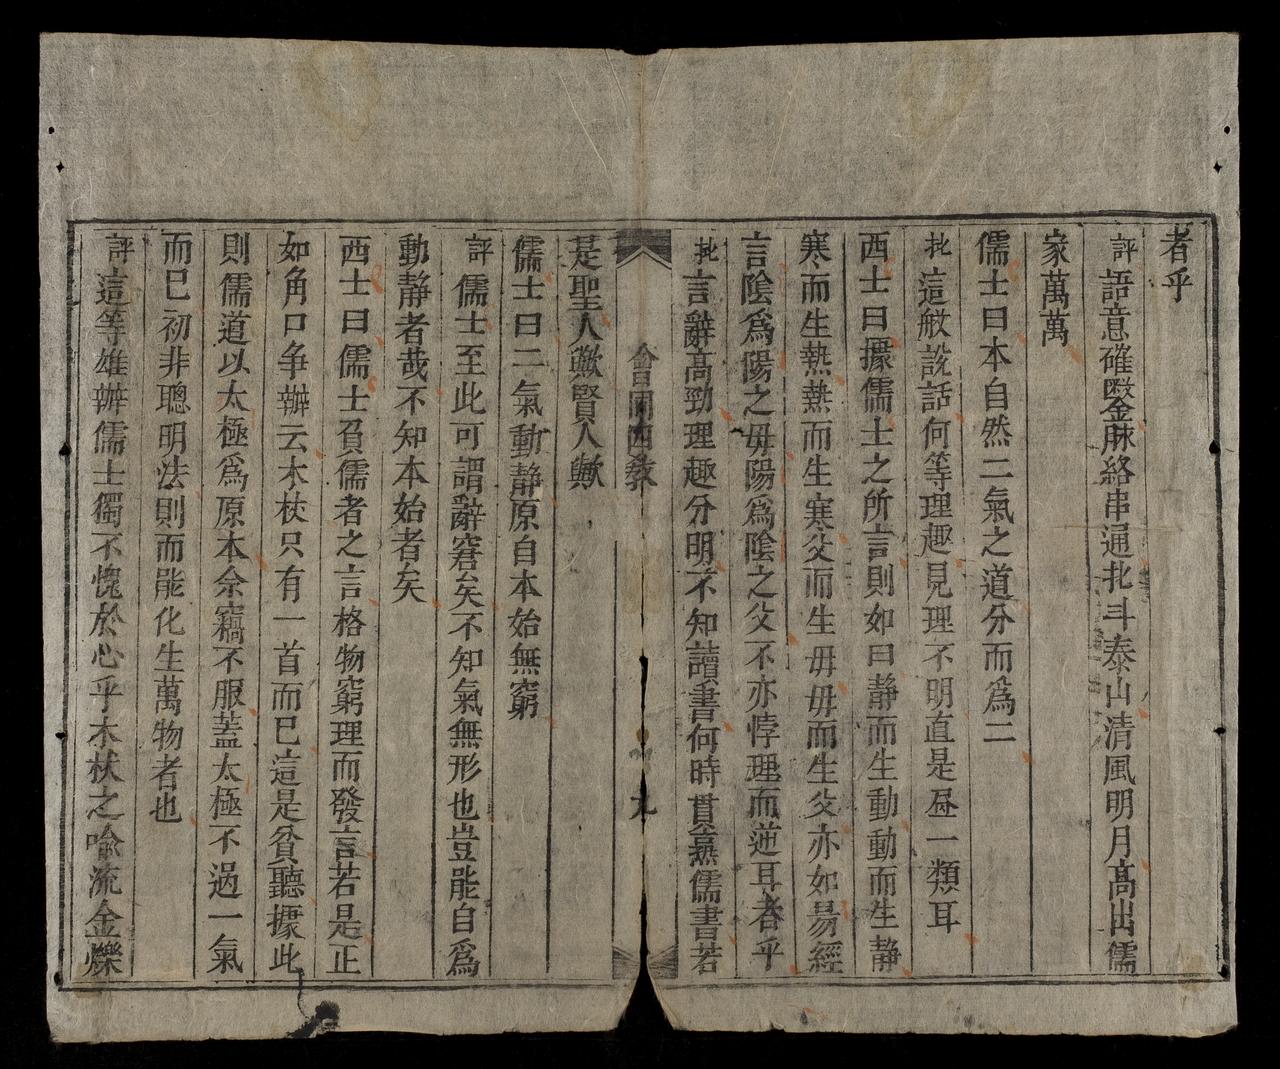 者乎
評 語意確斷金脉絡串通北斗泰山清風明月高出儒
家萬萬
儒士曰本自然二氣之道分而爲二
批 這般說話何等理趣見理不明直是昼一類耳
西士曰據儒士之所言則如曰静而生動動而生静
寒而生熱熱而生寒父而生毋毋而生父亦如昜經
言陰爲陽之毋陽爲陰之父不亦悖理而逆耳者乎
批 言辭髙勁理趣分明不知讀書何時貫羞儒書若
會同四教
九
是聖人歟賢人歟
儒士曰二氣動静原自本始無窮
評 儒士至此可謂辭窘矣不知氣無形也豈能自爲
動静者哉不知本始者矣
西士曰儒士負儒者之言格物窮理而發言若是正
如角口争辨云木杖只有一首而已這是貧聽據此
則儒道以太極爲原本余竊不服蓋太極不過一氣
而已初非聰明法則而能化生萬物者也
評 這等雄辨儒士獨不愧於心乎木杖之喻流金爍